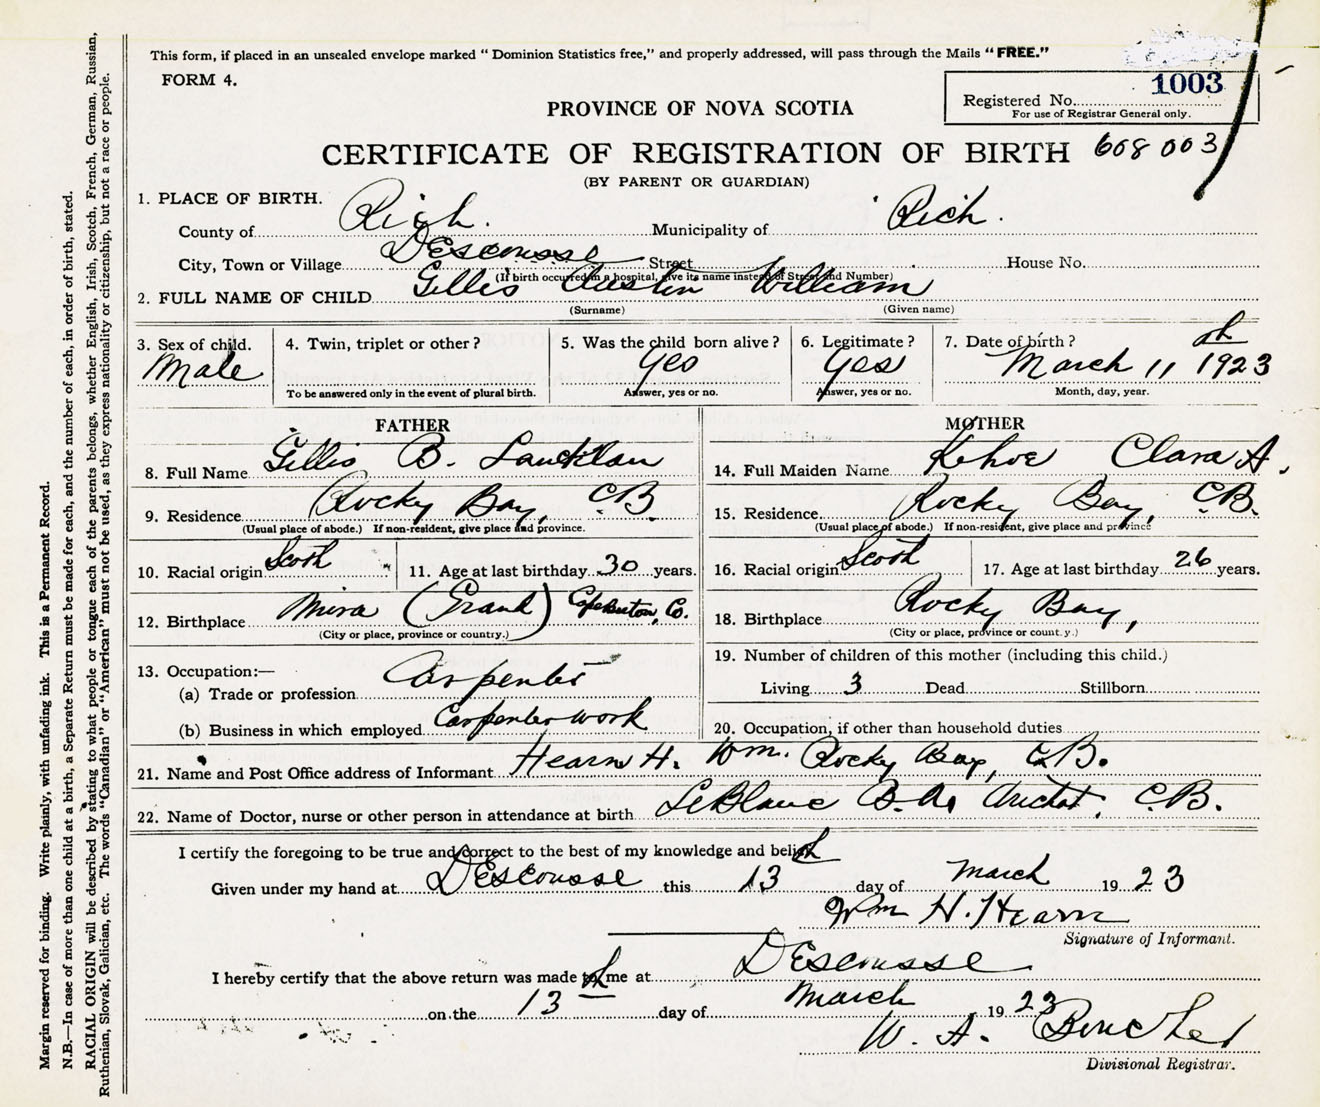 This form, if placed in an unsealed envelope marked "Dominion Statistics free," and properly addressed, will pass through the Mails "FREE."
FORM 4.
1003
Registered No.
For use of Registrar General only.
PROVINCE OF NOVA SCOTIA
CERTIFICATE OF REGISTRATION OF BIRTH 608 003
(BY PARENT OR GUARDIAN)
1. PLACE OF BIRTH.
County of Rich. Municipality of Rich.
City, Town or Village DEscousse Street House No.
(If birth occurred in a hospital, give its name instead of Street and Number)
2. FULL NAME OF CHILD Gillis Austin William
(Surname) (Given name)
3. Sex of child. 4. Twin, triplet or other? 5. Was the child born alive? 6. Legitimate? 7. Date of birth?
Male Yes Yes March 11th 1923
To be answered only in the event of plural birth. Answer, yes or no. Answer, yes or no. Month, day, year.
FATHER MOTHER
8. Full Name Gillis B. Laucklan 14. Full Maiden Name Kehoe Clara A.
9. Residence Rocky Bay, C.B. 15. Residence Rocky Bay, C.B.
(Usual place of abode.) If non-resident, give place and province. (Usual place of abode.) If non-resident, give place and province
10. Racial origin Scotch 11. Age at last birthday 30 years. 16. Racial origin Scotch 17. Age at last birthday 26 years.
12. Birthplace Mira (Grand) Cape Breton, Co. 18. Birthplace Rocky Bay,
(City or place, province or country.) (City or place, province or county.)
13. Occupation:— 19. Number of children of this mother (including this child.)
(a) Trade or profession Carpenter Living 3 Dead Stillborn
(b) Business in which employed Carpenter work 20. Occupation, if other than household duties
21. Name and Post Office address of Informant Hearn H. Wm. Rocky Bay, C.B.
22. Name of Doctor, nurse or other person in attendance at birth LeBlanc B. Arichat, C.B.
I certify the foregoing to be true and correct to the best of my knowledge and belief
Given under my hand at DEscousse this 13 day of March 1923
Wm H. Hearn
Signature of Informant.
I hereby certify that the above return was made to me at DEscousse
on the 13 day of March 1923
W. A. Boucher
Divisional Registrar.
Margin reserved for binding. Write plainly, with unfading ink. This is a Permanent Record.
N.B.—In case of more than one child at a birth, a Separate Return must be made for each, and the number of each, in order of birth, stated.
RACIAL ORIGIN will be described by stating to what people or tongue each of the parents belongs, whether English, Irish, Scotch, French, German, Russian,
Ruthenian, Slovak, Galician, etc. The words "Canadian" or "American" must not be used, as they express nationality or citizenship, but not a race or people.